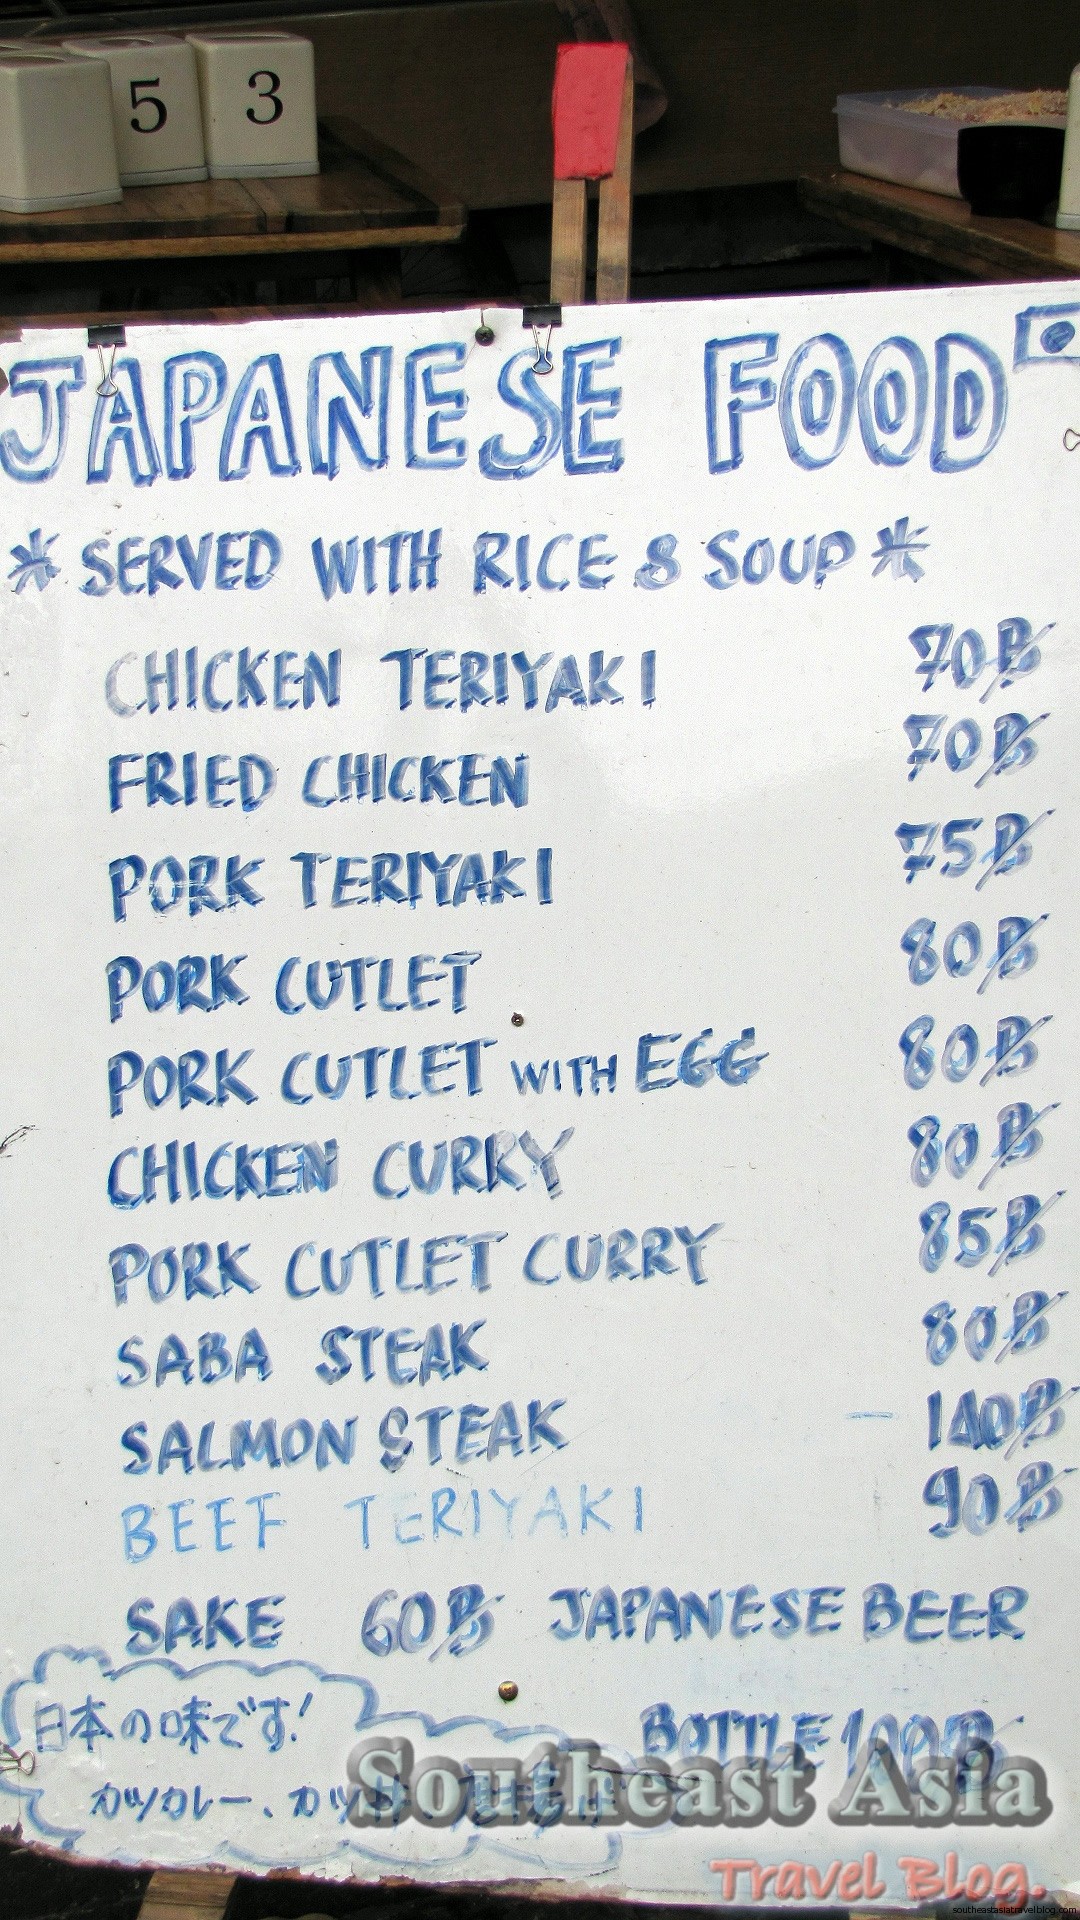 5 3
JAPANESE FOOD
* SERVED WITH RICE & SOUP *
CHICKEN TERIYAKI 70฿
FRIED CHICKEN 70฿
PORK TERIYAKI 75฿
PORK CUTLET 80฿
PORK CUTLET WITH EGG 80฿
CHICKEN CURRY 80฿
PORK CUTLET CURRY 85฿
SABA STEAK 80฿
SALMON STEAK - 140฿
BEEF TERIYAKI 90฿
SAKE 60฿ JAPANESE BEER
BOTTLE 100฿
日本の味です!
カツカレー、カツ丼、
Southeast Asia
Travel Blog.
southeastasiatravelblog.com